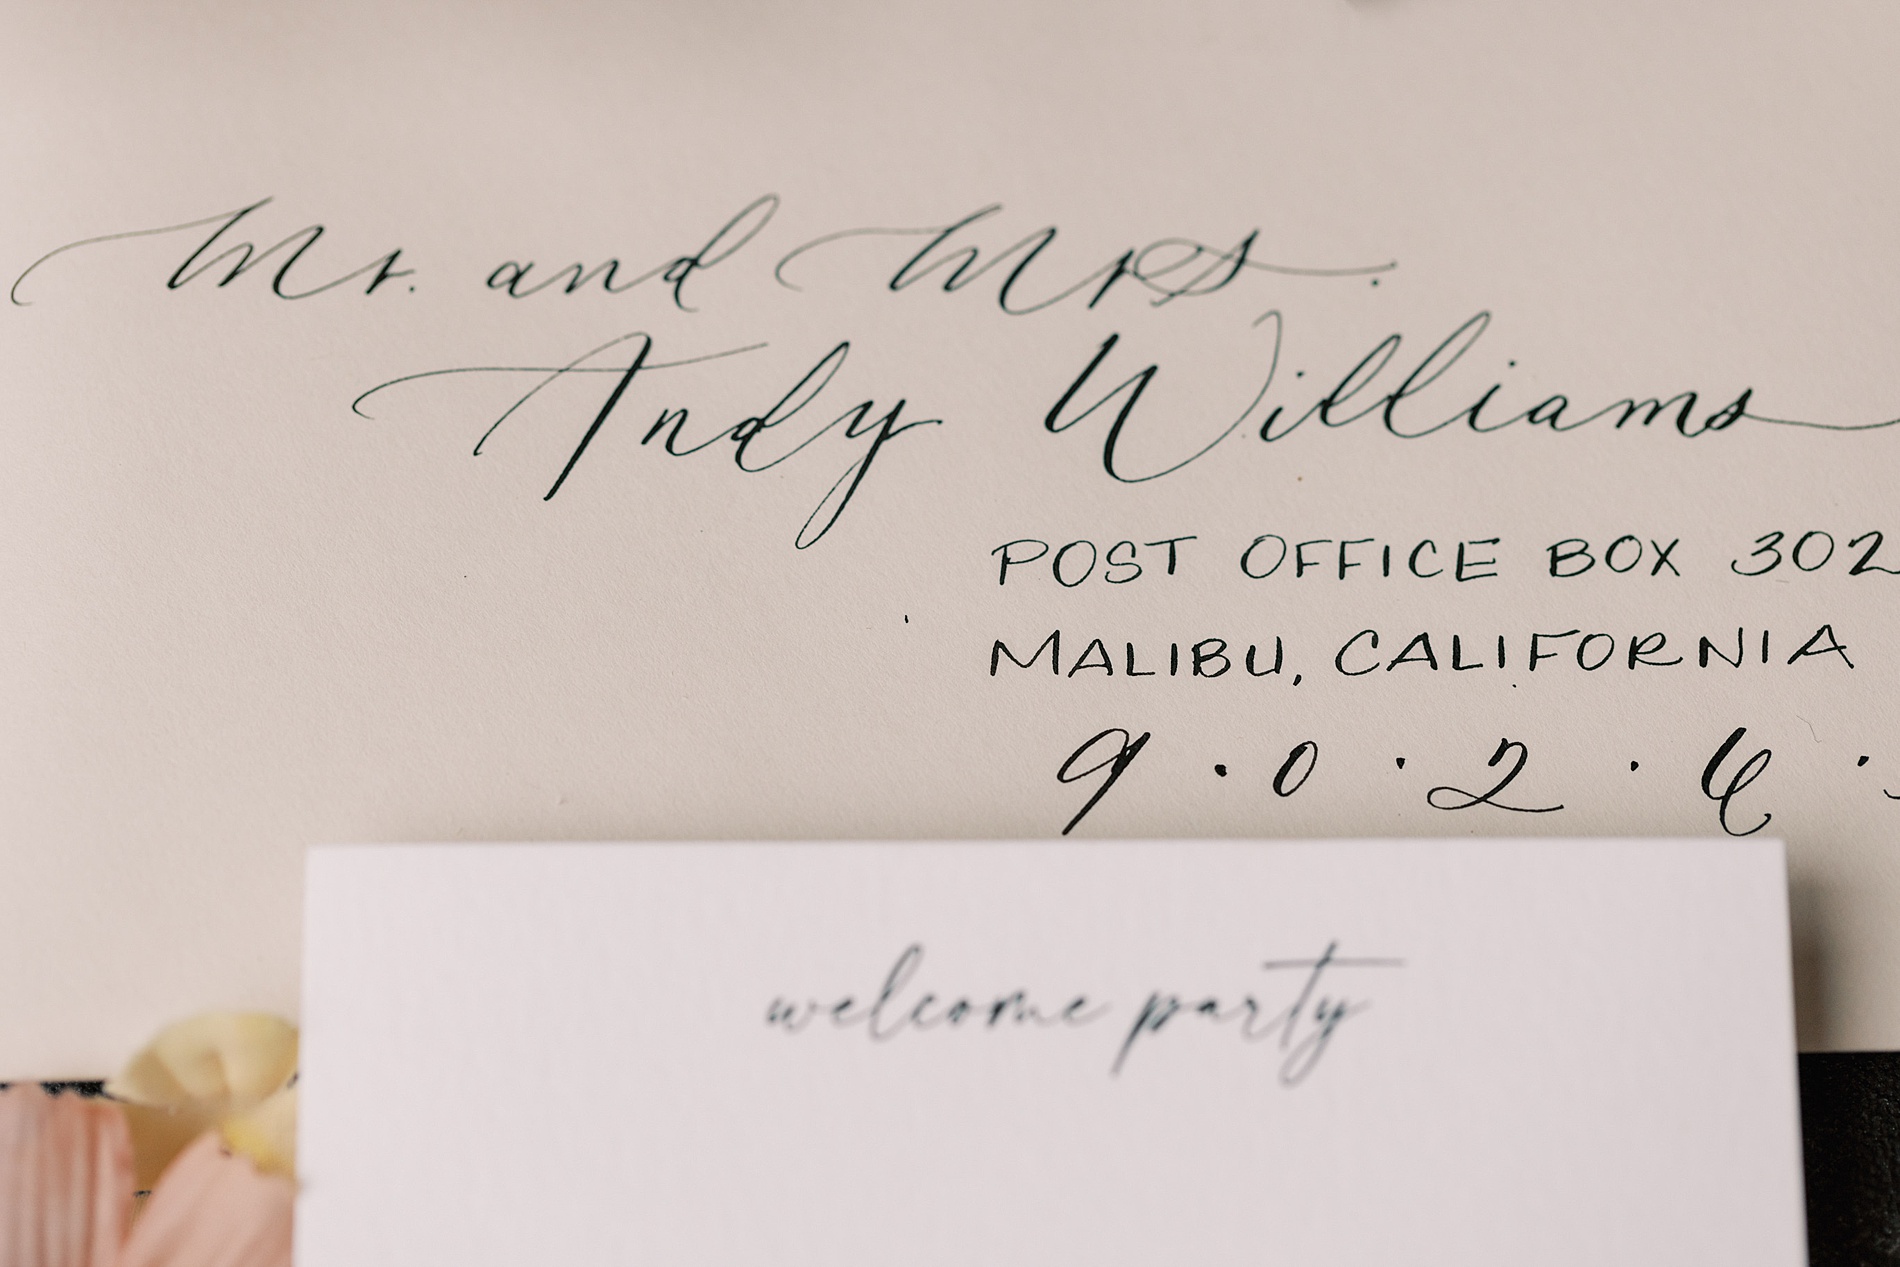 Mr. and Mrs.
Andy Williams
POST OFFICE BOX 302
MALIBU, CALIFORNIA
9 · 0 · 2 · 6 ·
welcome party